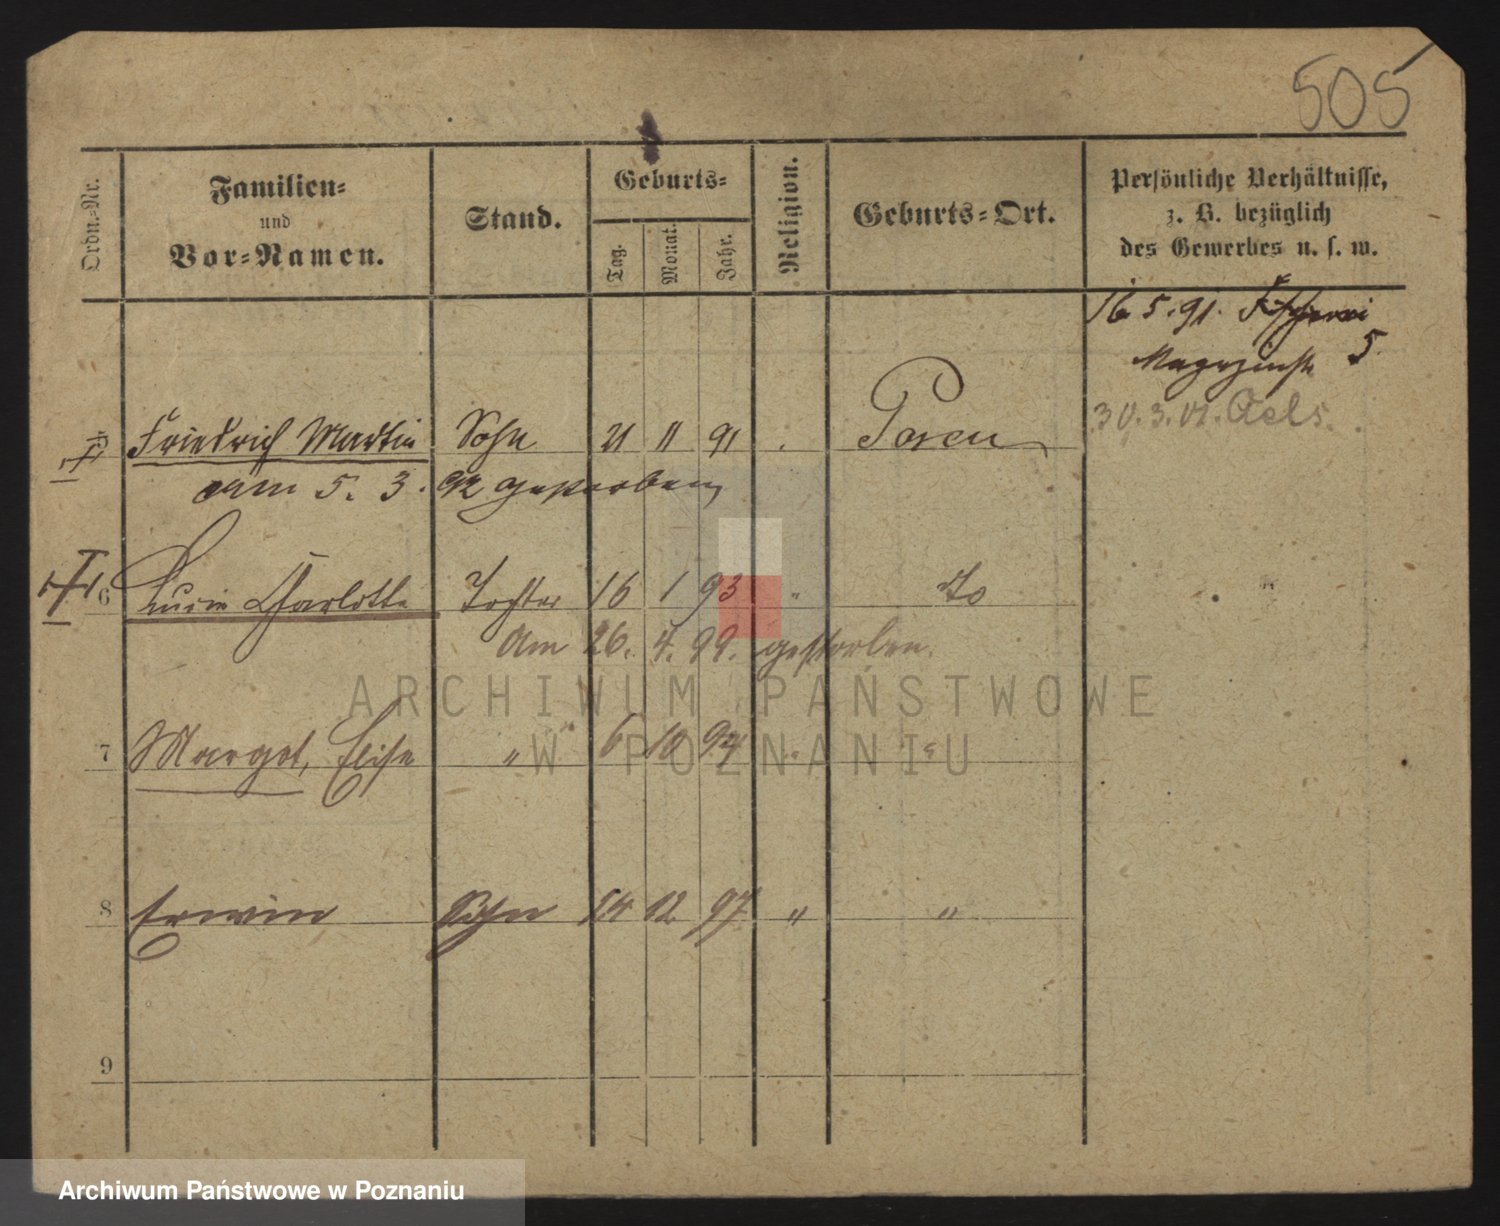 505
Ordn.-Nr.
Familien-
und
Vor-Namen.
Stand.
Geburts-
Tag.
Monat.
Jahr.
Religion.
Geburts-Ort.
Persönliche Verhältnisse,
z. B. bezüglich
des Gewerbes u. s. w.
16 5. 91.
Magazinstr 5
30. 3. 01. Oels.
5 Friedrich Martin Sohn 21 11 91 Posen
am 5. 3. 92 gestorben
6 Charlotte Tochter 16 1 93 " do
Am 26. 4. 99. gestorben.
7 Margot, Elise " 6 10 94 " "
8 Erwin Sohn 14 12 97 " "
9
ARCHIWUM PAŃSTWOWE
W POZNANIU
Archiwum Państwowe w Poznaniu